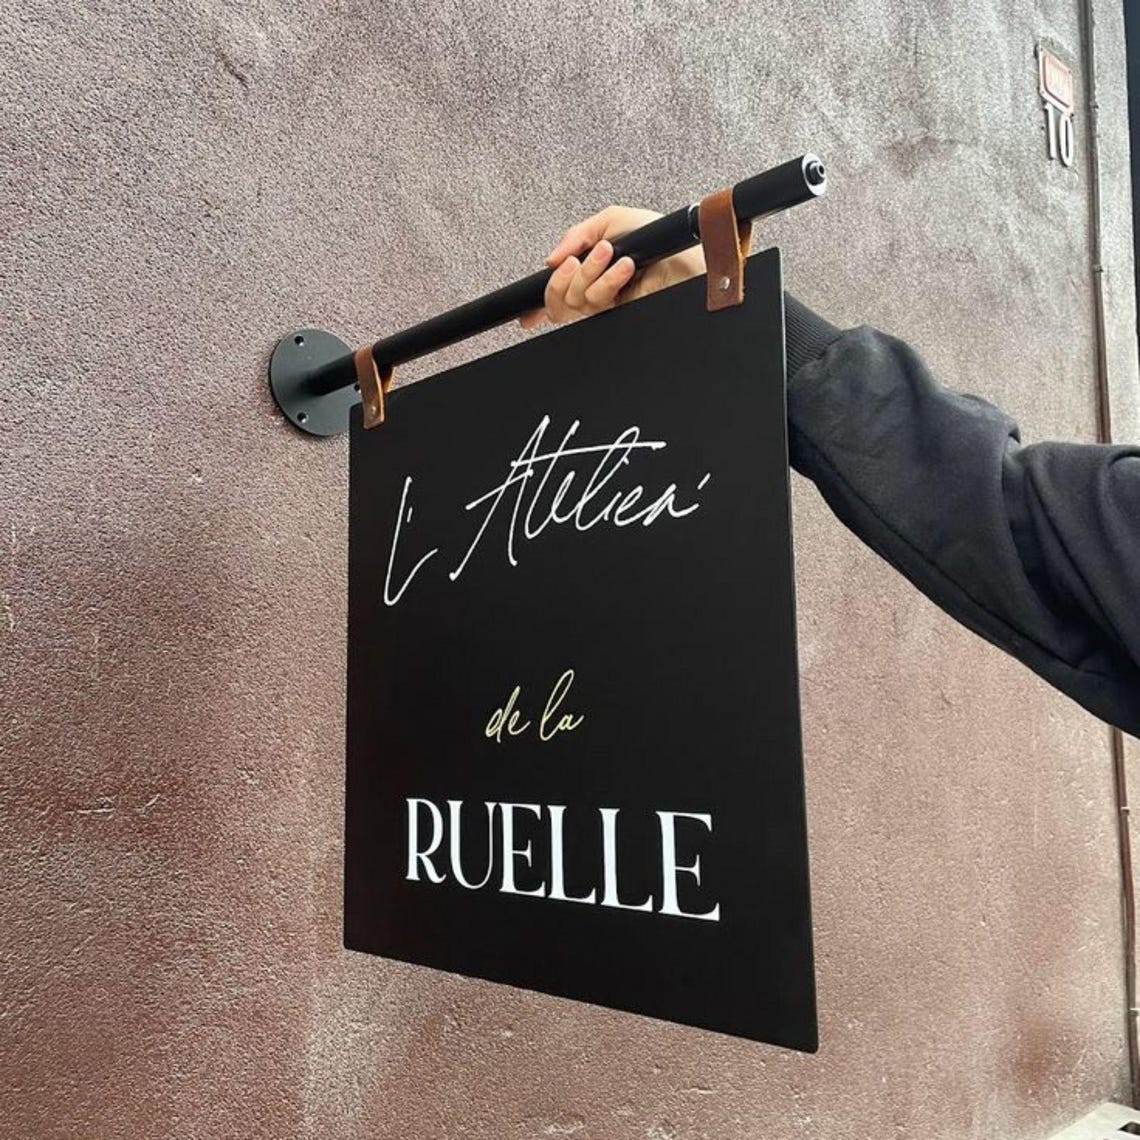 L'Atelier
de la
RUELLE
10